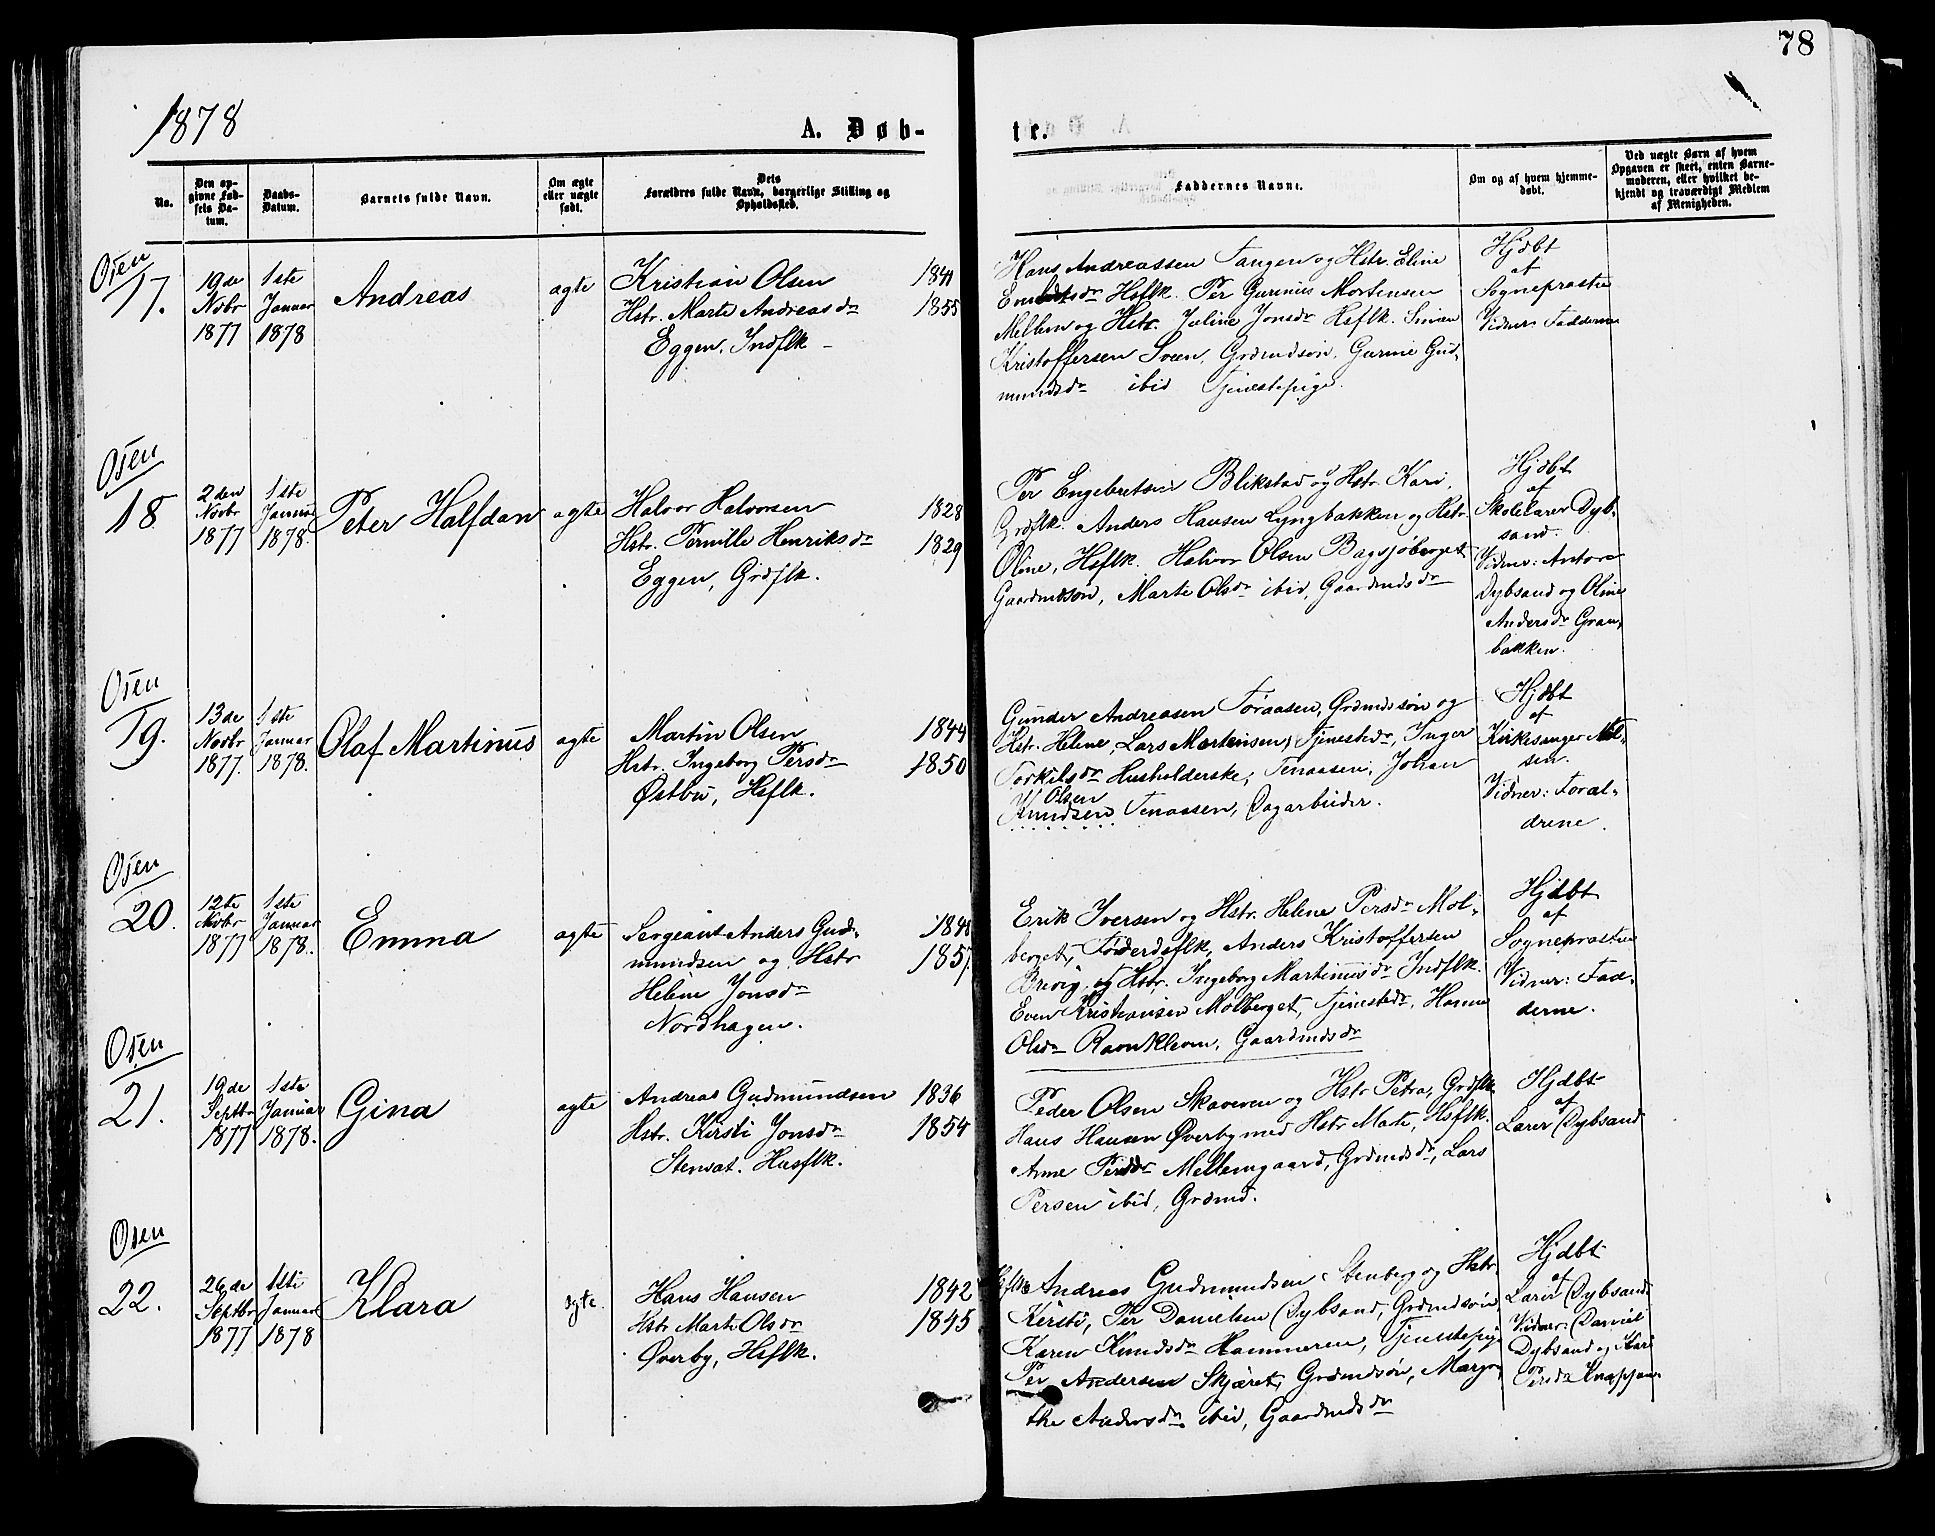 78
1878
A. Døb-
te.
No.
Den op-
givne Fød-
sels Da-
tum.
Daabs-
Datum.
Barnets fulde Navn.
Om ægte
eller uægte
født.
Dets
Forældres fulde Navn, borgerlige Stilling og
Opholdssted.
Faddernes Navne.
Om og af hvem hjemme-
døbt.
Ved uægte Børn af hvem
Opgaven er skeet, enten Barne-
moderen, eller hvilket be-
kjendt og troværdigt Medlem
af Menigheden.
Osen
17.
19de
Novbr
1877
1ste
Januar
1878
Andreas
ægte
Kristian Olsen
Hstr. Marte Andreasdr
1855
Eggen. Indflk
Hans Andreassen Tangen og Hstr. Eline
Hsflk. Per Gunnius Mortensen
og Hstr. Juline Jonsdr Hsflk.
Kristoffersen Grdmdsøn, Gud-
mundsdr ibid Tjenestepige.
Hjdbt
af
Sognepræsten
Vidner Fadderne
Osen
18
2den
Novbr
1877
1ste
Januar
1878.
Peter Halfdan
ægte
Halvor Halvorsen 1828
Hstr. Pernille Henriksdr 1829
Eggen, Grdflk.
Per Engebretsen Blikstad og Hstr. Kari,
Grdflk. Anders Hansen Lyngbakken og Hstr.
Oline, Hsflk. Halvor Olsen Bagsjøberget
Gaardmdsøn, Marte Olsdr ibid, Gaardmdsdr
Hjdbt
af
Skolelærer Dyb-
sand.
Vidner: Antora
Dybsand og Oline
Andersdr Gran-
bakken.
Osen
19.
13de
Novbr
1877.
1ste
Januar
1878.
Olaf Martinus
ægte
Martin Olsen 1844
Hstr. Ingeborg Persdr 1850
Østbu, Hsflk.
Gunder Andreasen Toraasen, Grdmdssøn og
Hstr. Helene, Lars Mortensen, Tjenestedr, Inger
Torkilsdr Husholderske, Tenaasen, Johan
Olsen
Knudsen Tenaasen, Dagarbeider.
Hjdbt
af
Kirkesanger Nil-
sen.
Vidner: Foræl-
drene.
Osen
20.
12te
Novbr
1877
1ste
Januar
1878.
Emma
ægte
Sergeant Anders Gud-
mundsen og Hstr 1857.
Helene Jonsdr
Nordhagen.
Erik Iversen og Hstr. Helene Persdr Mol-
berget, Føderdsflk, Anders Kristoffersen
Brevig, og Hstr. Ingeborg Martinusdr Indflk.
Even Kristiansen Molberget, Tjenestedr, Hanne
Olsdr Ravnkleven, Gaardmdsdr
Hjdbt
af
Sognepræsten
Vidner: Fad-
derne.
Osen
21.
19de
Septbr
1877
1ste
Januar
1878.
Gina
ægte
Andreas Gudmundsen 1836
Hstr. Kirsti Jonsdr 1854
Husflk.
Peder Olsen Skaveren og Hstr Petra, Grdflk
Hans Hansen Øverby med Hstr Mate, Hsflk.
Anne Persdr Mellemgaard, Grdmdsdr, Lars
Persen ibid, Grdmd.
Hjdbt
af
Lærer Dybsand
Osen
22.
26de
Septbr
1877
1ste
Januar
1878
Klara
ægte
Hans Hansen 1842
Hstr Marte Olsdr 1845
Øverby, Hsflk.
Andreas Gudmundsen Stenberg og Hstr.
Kirsti, Per Danielsen Dybsand, Grdmdsøn
Karen Knudsdr Hammeren, Tjenestepige
Per Andersen Skjæret, Grdmdsøn, Margre-
the Andersdr ibid, Gaardmdsdr
Hjdbt
af
Lærer Dybsand
Vidner: Daniel
Dybsand og Kari
Persdr Knappen